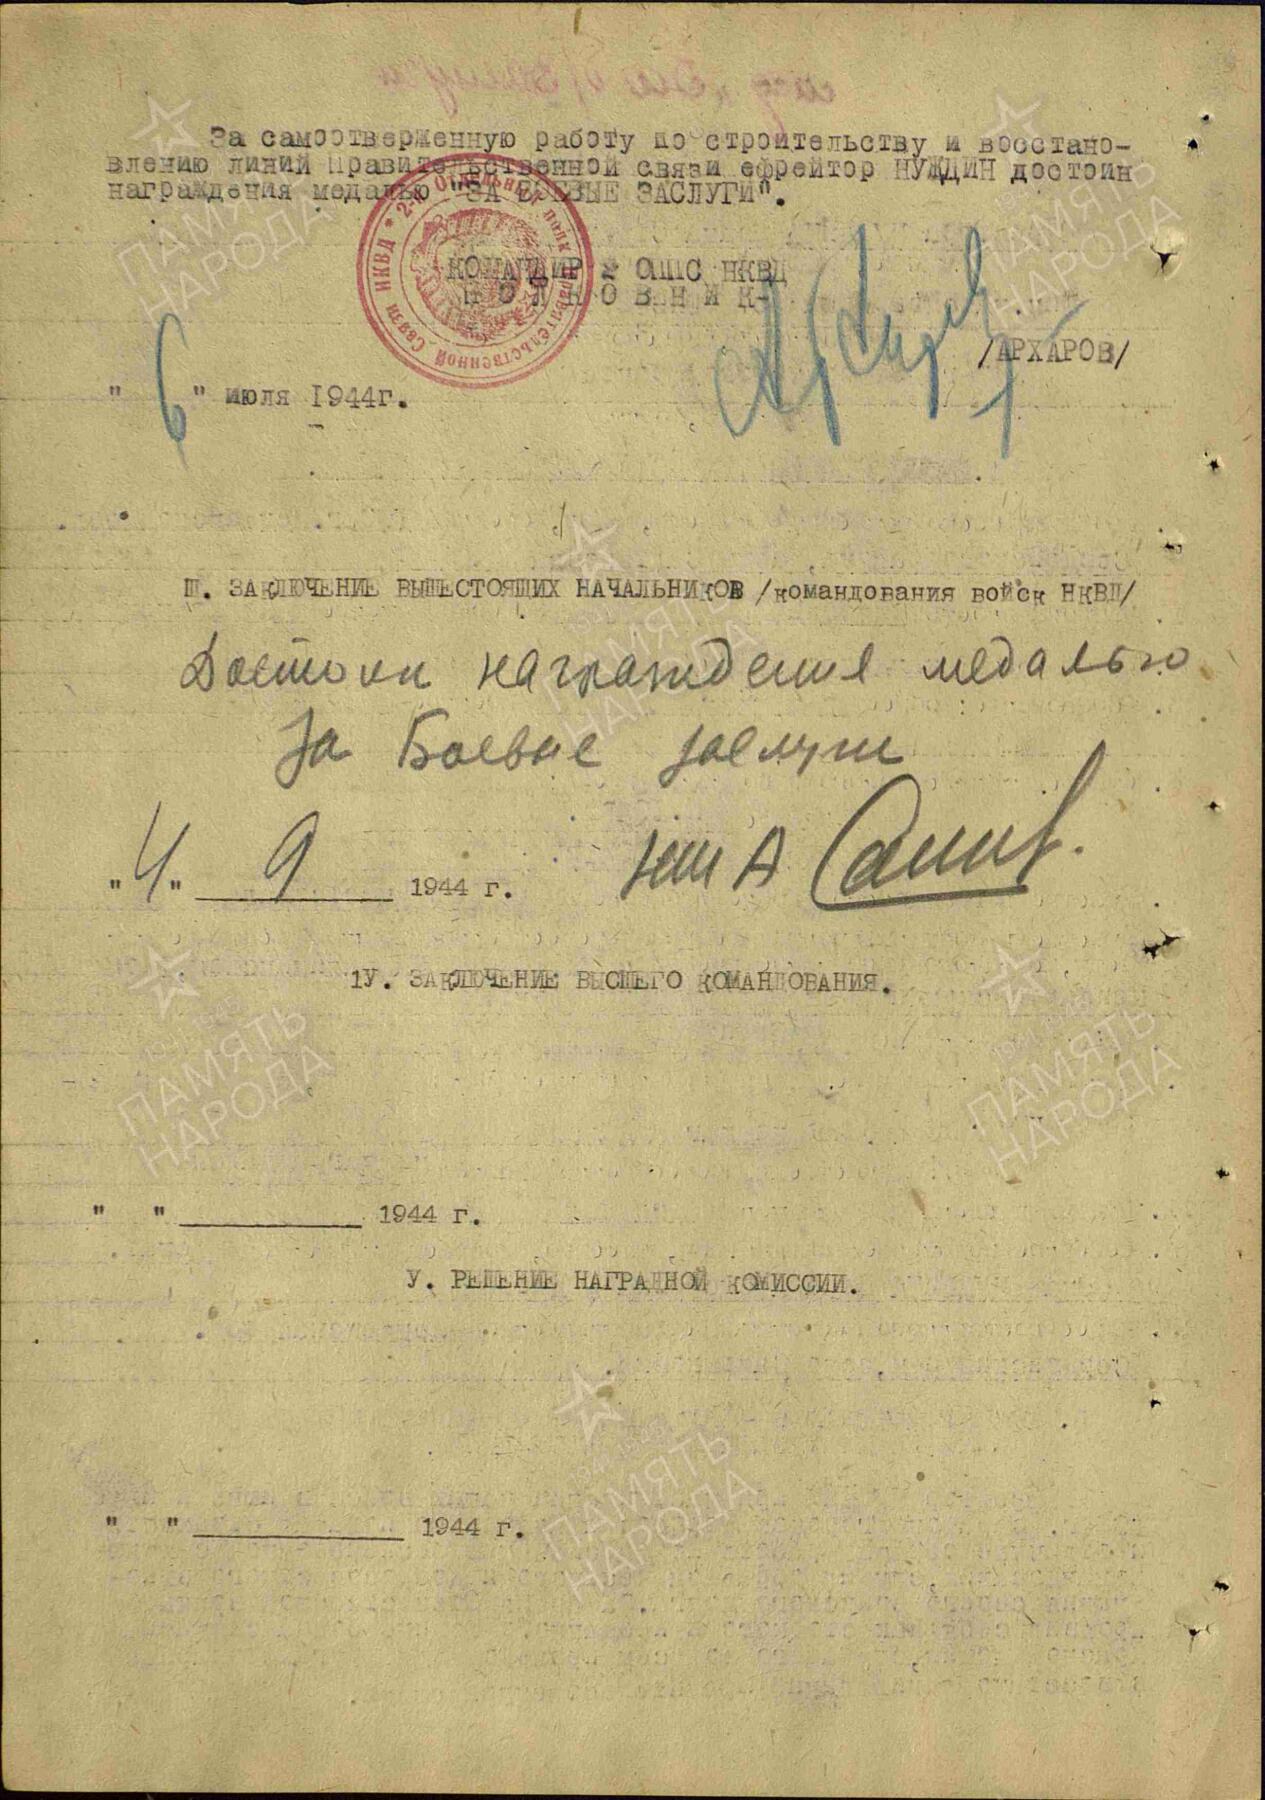 За самоотверженную работу по строительству и восстано-
влению линий Правительственной связи ефрейтор НУЖДИН достоин
награждения медалью "ЗА БОЕВЫЕ ЗАСЛУГИ".
2-й Отдельный полк Правительственной Связи НКВД
КОМАНДИР 2 ОППС НКВД
П О Л К О В Н И К-
/АРХАРОВ/
" 6 " июля 1944г.
Ш. ЗАКЛЮЧЕНИЕ ВЫШЕСТОЯЩИХ НАЧАЛЬНИКОВ /командования войск НКВД/
Достоин награждения медалью
за Боевые заслуги
"4" 9 1944 г.
1У. ЗАКЛЮЧЕНИЕ ВЫСШЕГО КОМАНДОВАНИЯ.
" " 1944 г.
У. РЕШЕНИЕ НАГРАДНОЙ КОМИССИИ.
" " 1944 г.
ПАМЯТЬ
НАРОДА